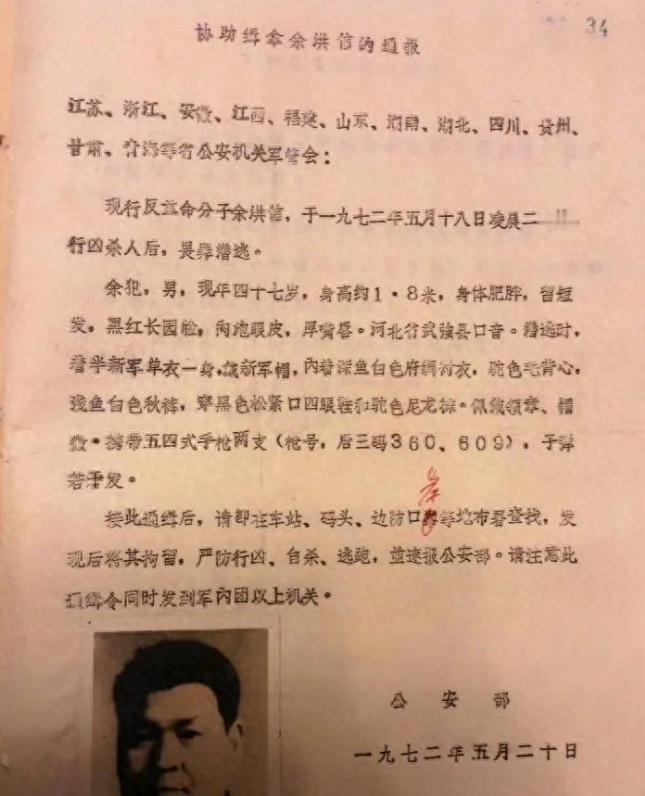 34
协助缉拿余洪信的通报
江苏、浙江、安徽、江西、福建、山东、湖南、湖北、四川、贵州、
甘肃、青海等省公安机关军管会:
现行反革命分子余洪信,于一九七二年五月十八日凌晨二
行凶杀人后,畏罪潜逃。
余犯,男,现年四十七岁,身高约1·8米,身体肥胖,留短
发,黑红长园脸,肉泡眼皮,厚嘴唇。河北省武强县口音。潜逃时,
着半新军单衣一身,戴新军帽,内着深鱼白色府绸衬衣,驼色毛背心,
浅鱼白色秋裤,穿黑色松紧口四眼鞋和驼色尼龙袜。佩戴领章、帽
徽。携带五四式手枪两支(枪号,后三码360、609),子弹
若干发。
接此通缉后,请即在车站、码头、边防口岸等地布署查找,发
现后将其拘留,严防行凶、自杀、逃跑,并速报公安部。请注意此
通缉令同时发到军内团以上机关。
公安部
一九七二年五月二十日